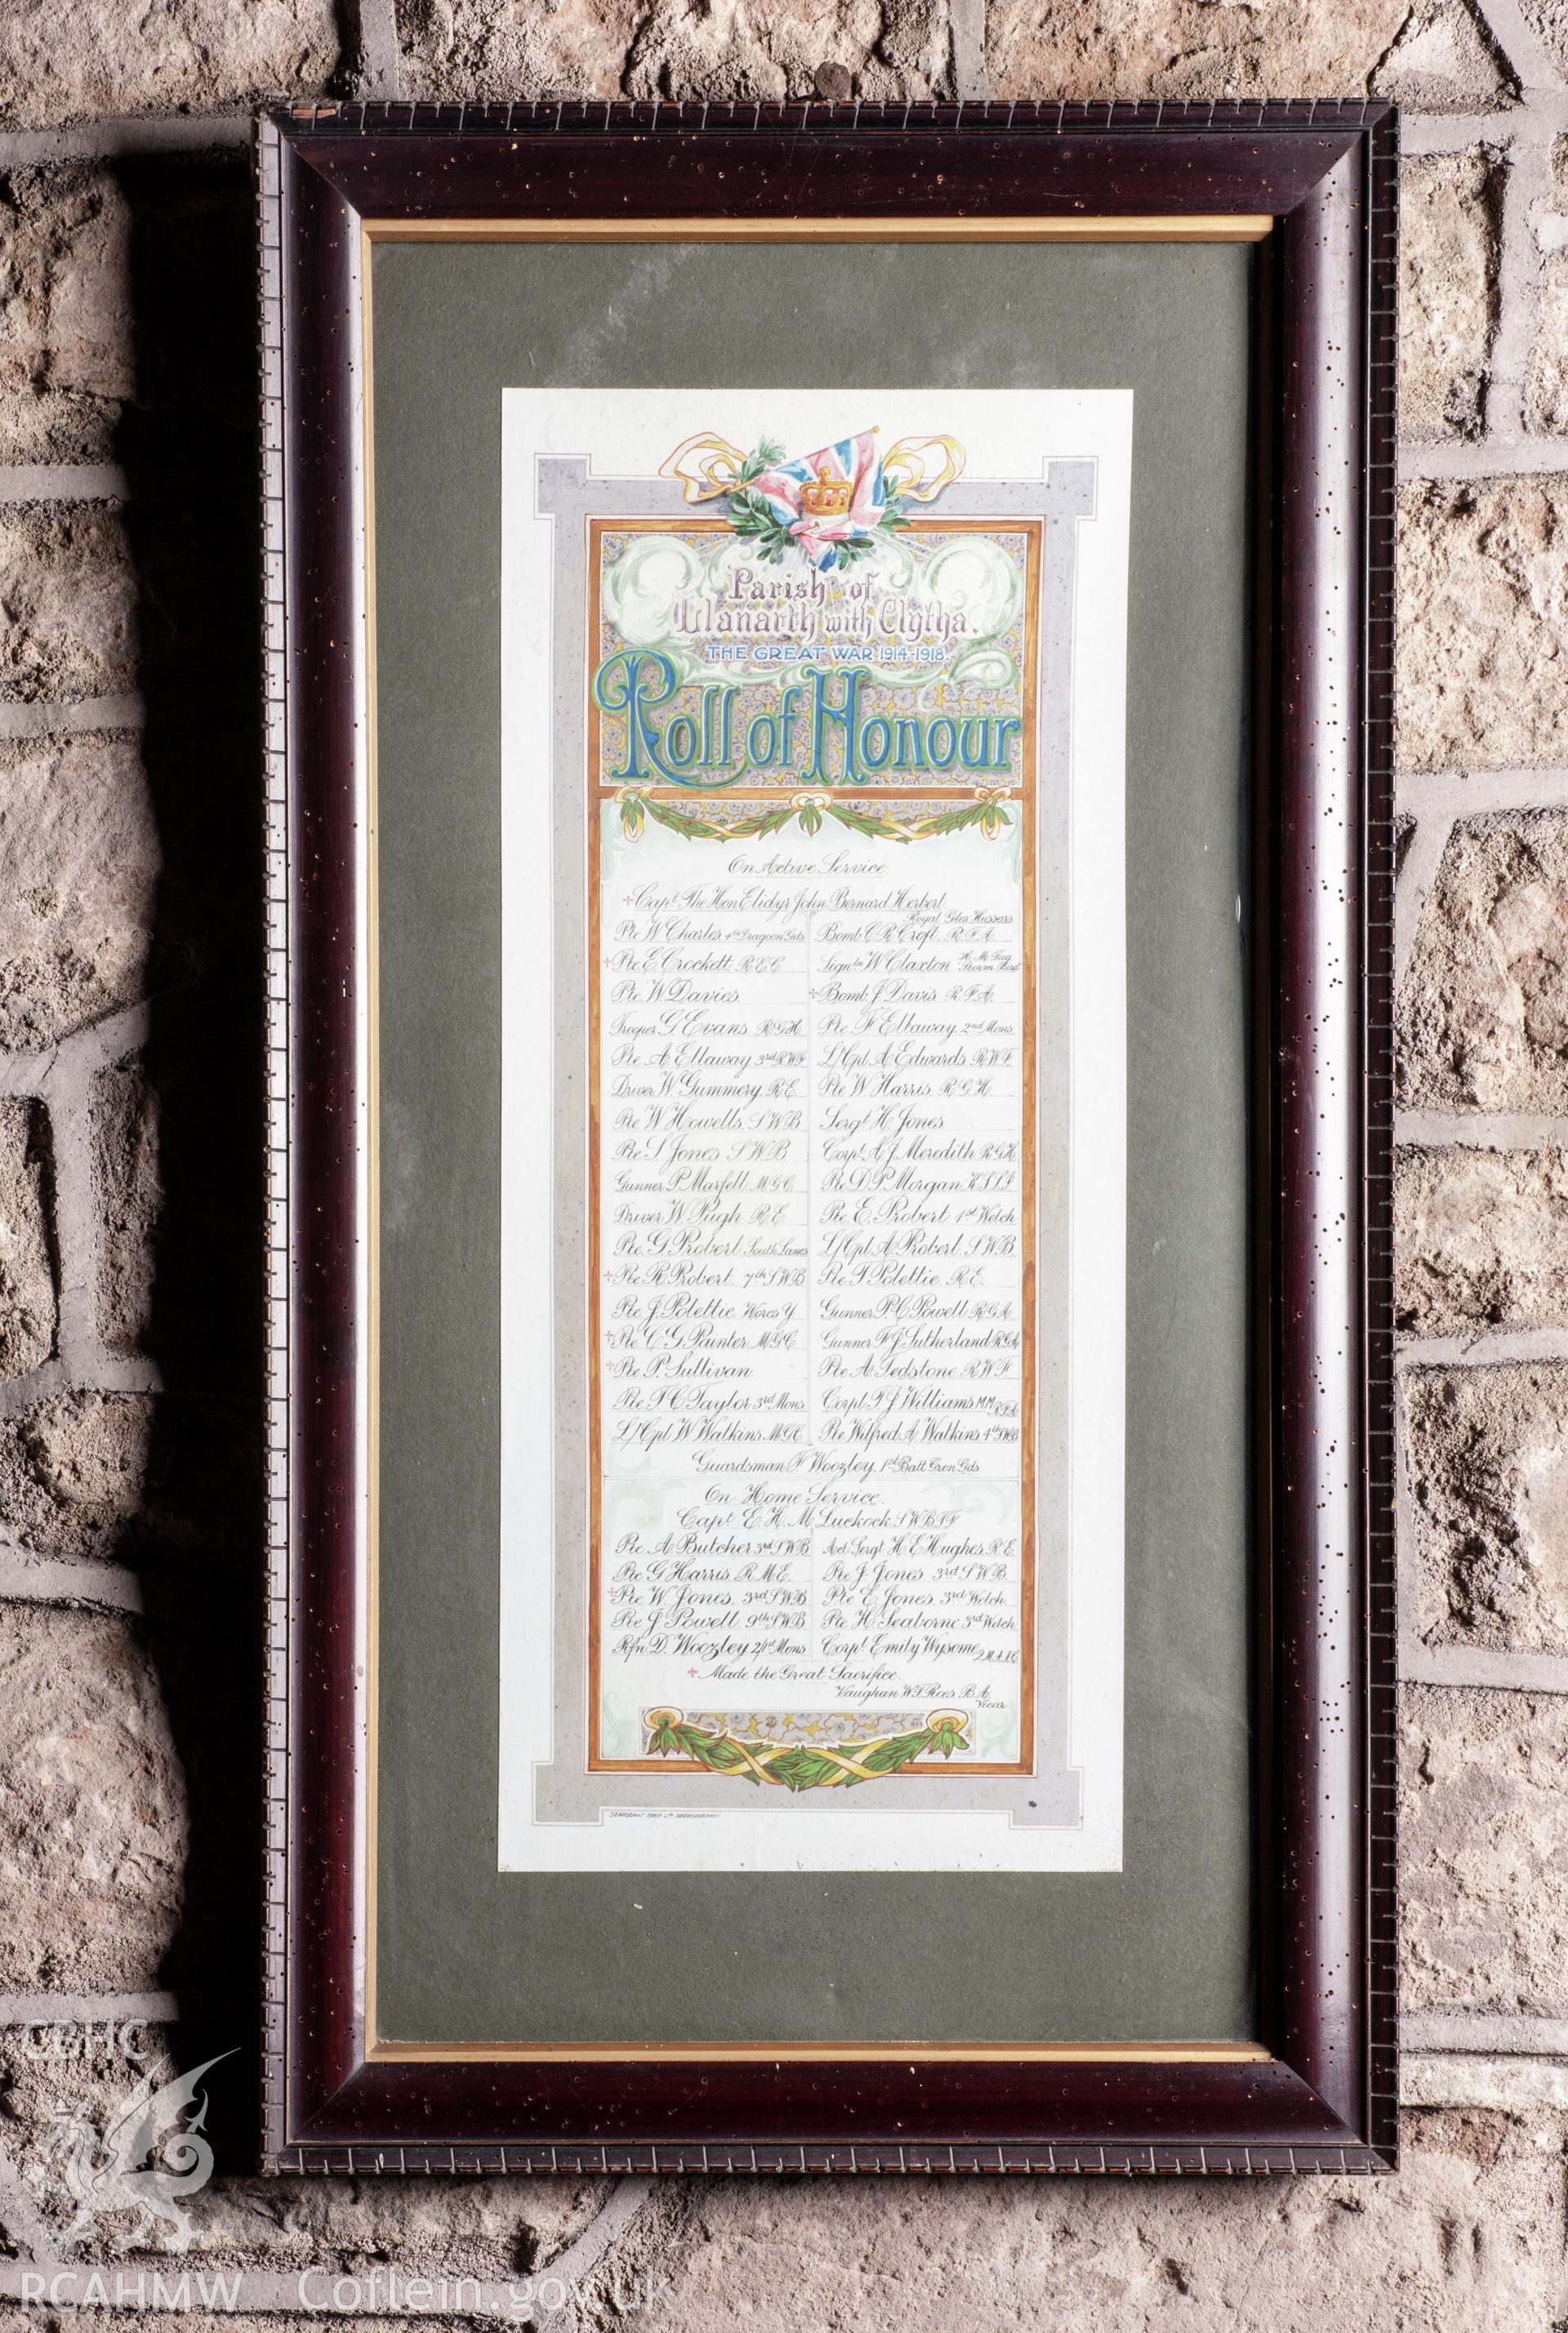 Parish of
Llanarth with Clytha.
THE GREAT WAR 1914-1918.
Roll of Honour
On Active Service.
+Capt. The Hon Elidyr John Bernard Herbert
Royal Glos Hussars
Pte W Charles 4th Dragoon Gds Bomb C R Croft. R.F.A.
+Pte E Crockett. R.E.C. Signln W Claxton H.M.Tug Storm Bird
Pte. W. Davies. +Bomb J Davis. R.F.A.
Trooper G Evans R.G.H. Pte. F Ellaway 2nd Mons.
Pte. A Ellaway 3rd RWF L/Cpl A Edwards R.W.F.
Driver W. Gummery. R.E. Pte W Harris R.G.H.
Pte W Howells. S.W.B Sergt H. Jones
Pte. S Jones S.W.B Corpl A J Meredith R.G.H.
Gunner P. Marfell M.G.C. Pte D.P. Morgan K.S.L.I
Driver W. Pugh R.E. Pte. E. Probert 1st Welch
Pte. G Probert South Lancs L/Cpl A. Probert. S.W.B.
+Pte R. Probert. 7th S.W.B Pte T Polettie. R.E.
Pte J. Polettie. Worcs Y. Gunner P.C. Powell R.G.A.
+Pte C G Painter. M.G.C Gunner F J Sutherland R.G.A
+Pte P. Sullivan. Pte A. Tedstone. R.W.F.
Pte F C Taylor 3rd Mons. Corpl T J Williams MM R.F.A.
L/Cpl W Watkins. M.G.C. Pte Wilfred A Watkins 4th SWB
Guardsman F Woozley. 1st Batt Gren Gds.
On Home Service.
Capt E. H. M Luckock. S.W.B T.F
Pte A Butcher 3rd S.W.B Act Sergt H E Hughes R.E.
Pte G Harris. R.M.E. Pte J Jones 3rd S.W.B
+Pte W. Jones. 3rd S.W.B Pte E Jones 3rd Welch
Pte J. Powell 9th S.W.B Pte H. Seaborne 3rd Welch
Rfn D. Woozley 2/1st Mons Corpl Emily Wysome
+ Made the Great Sacrifice.
Vaughan W.T. Rees B.A.
Vicar
SEARGEANT BROS LTD ABERGAVENNY.
CBHC
RCAHMW Coflein.gov.uk